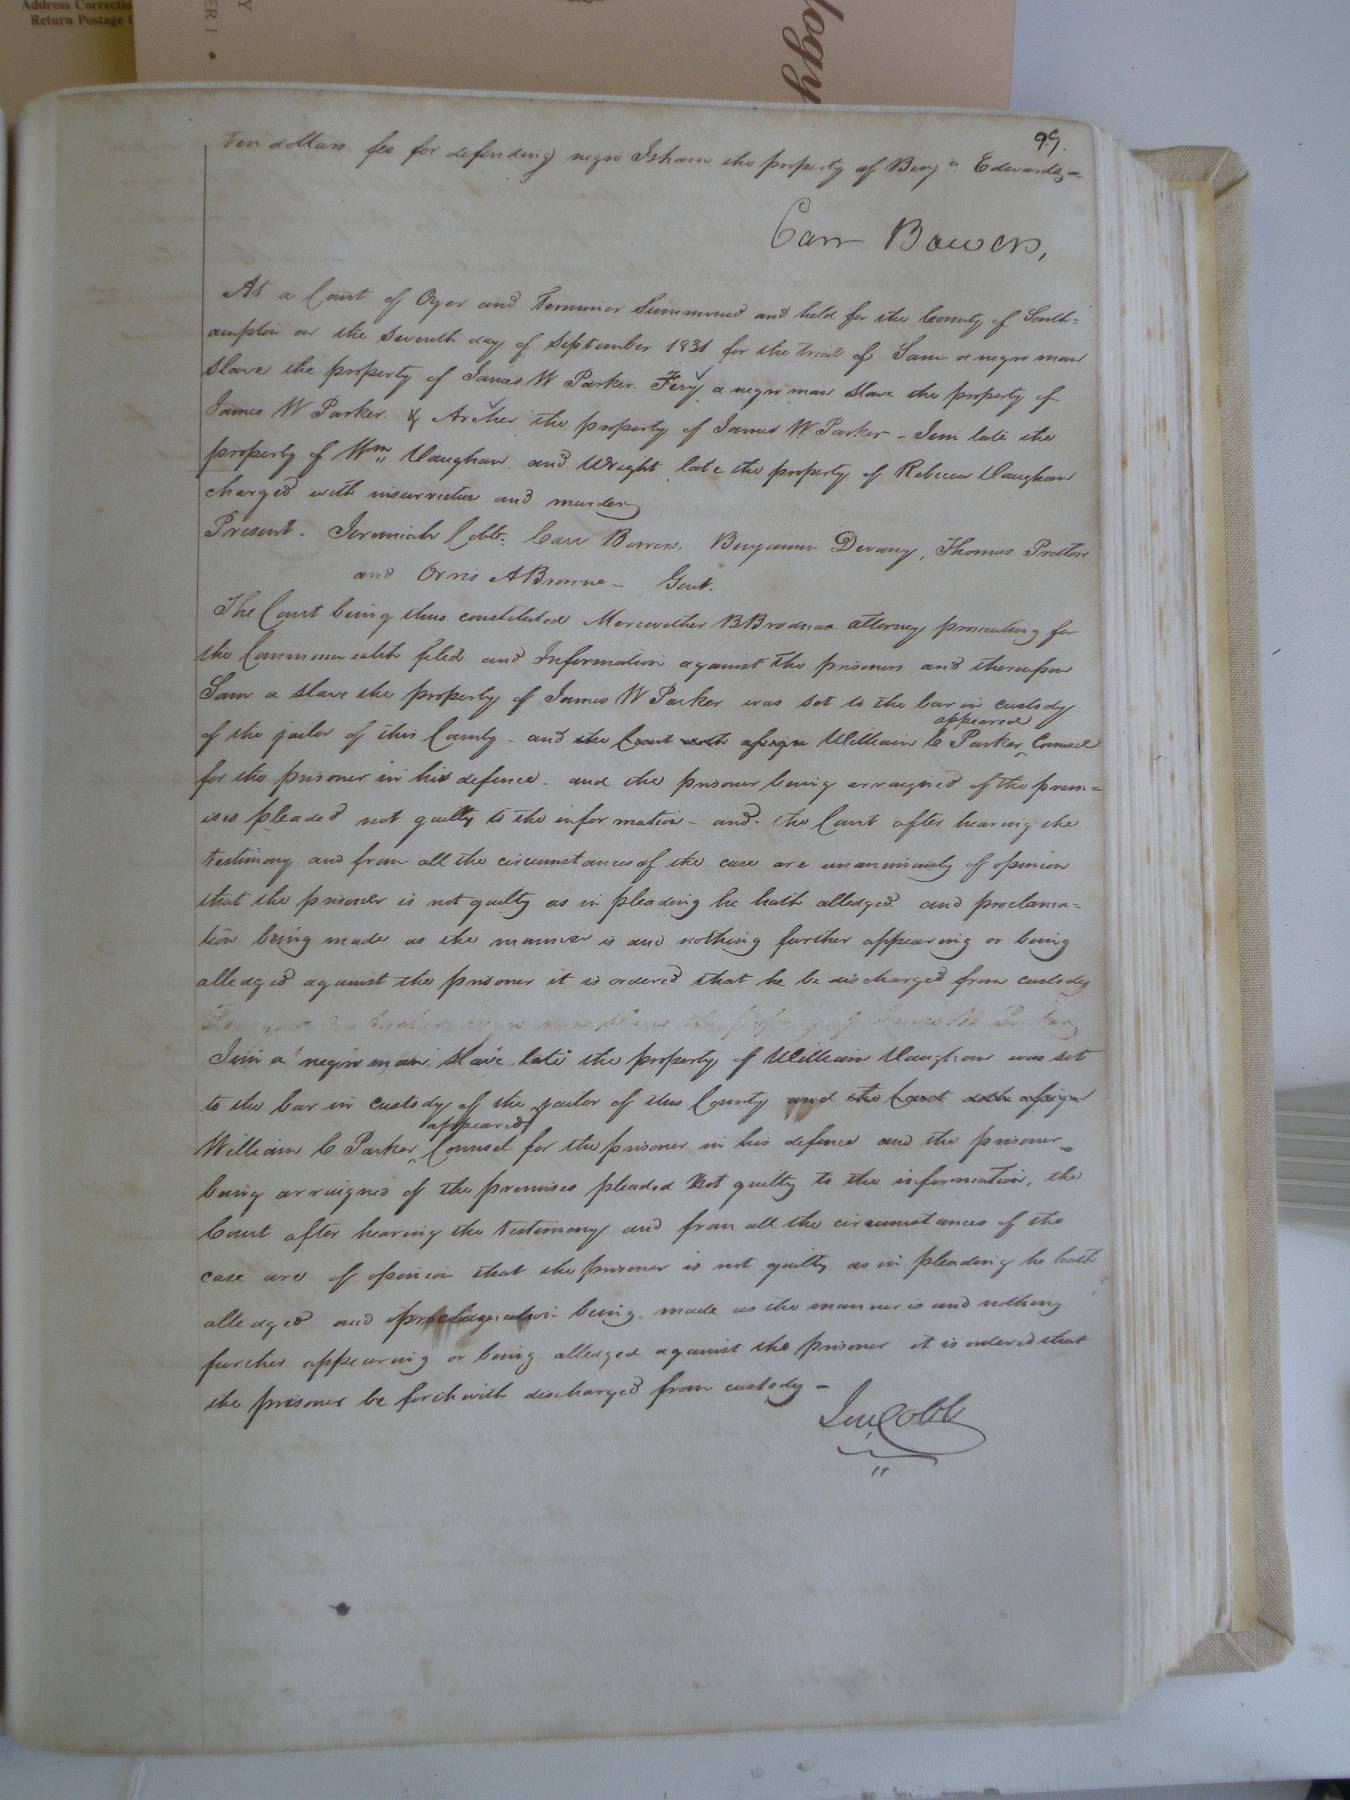 Address Correctio
Return Postage
ER 1 •
Y
logy
99.
ten dollars fee for defending negro Isham the property of Benja. Edwards,—
Carr Bowers,
At a Court of Oyer and Terminer Summoned and held for the County of South=
ampton on the seventh day of September 1831 for the trial of Sam a negro man
Slave the property of James W Parker. Fery a negro man Slave the property of
James W Parker. & Archer the property of James W Parker - Jim late the
property of Wm. Vaughan and Wright late the property of Rebecca Vaughan
charged with insurrection and murder
Present. Jeremiah Cobb, Carr Bowers, Benjamin Devany, Thomas Pretlow
and Orris A Browne - Gent.
The Court being thus constituted Meriwether B Brodnax attorney prosecuting for
the Commonwealth filed and Information against the prisoners and thereupon
Sam a slave the property of James W Parker was set to the bar in custody
appeared
of the jailor of this County - and the Court doth assign William C Parker Counsel
for the prisoner in his defence - and the prisoner being arraigned of the prem=
ises pleaded not guilty to the information - and the Court after hearing the
testimony and from all the circumstances of the case are unanimously of opinion
that the prisoner is not guilty as in pleading he hath alledged and proclama=
tion being made as the manner is and nothing further appearing or being
alledged against the prisoner it is ordered that he be discharged from custody
Jim a negro man slave late the property of William Vaughan was set
to the bar in custody of the jailor of this County and the Court doth assign
appeared
William C Parker Counsel for the prisoner in his defence and the prisoner
being arraigned of the premises pleaded Not guilty to the information, the
Court after hearing the testimony and from all the circumstances of the
case are of opinion that the prisoner is not guilty as in pleading he hath
alledged and proclamation being made as the manner is and nothing
further appearing or being alledged against the prisoner it is ordered that
the prisoner be forthwith discharged from custody -
Jer. Cobb